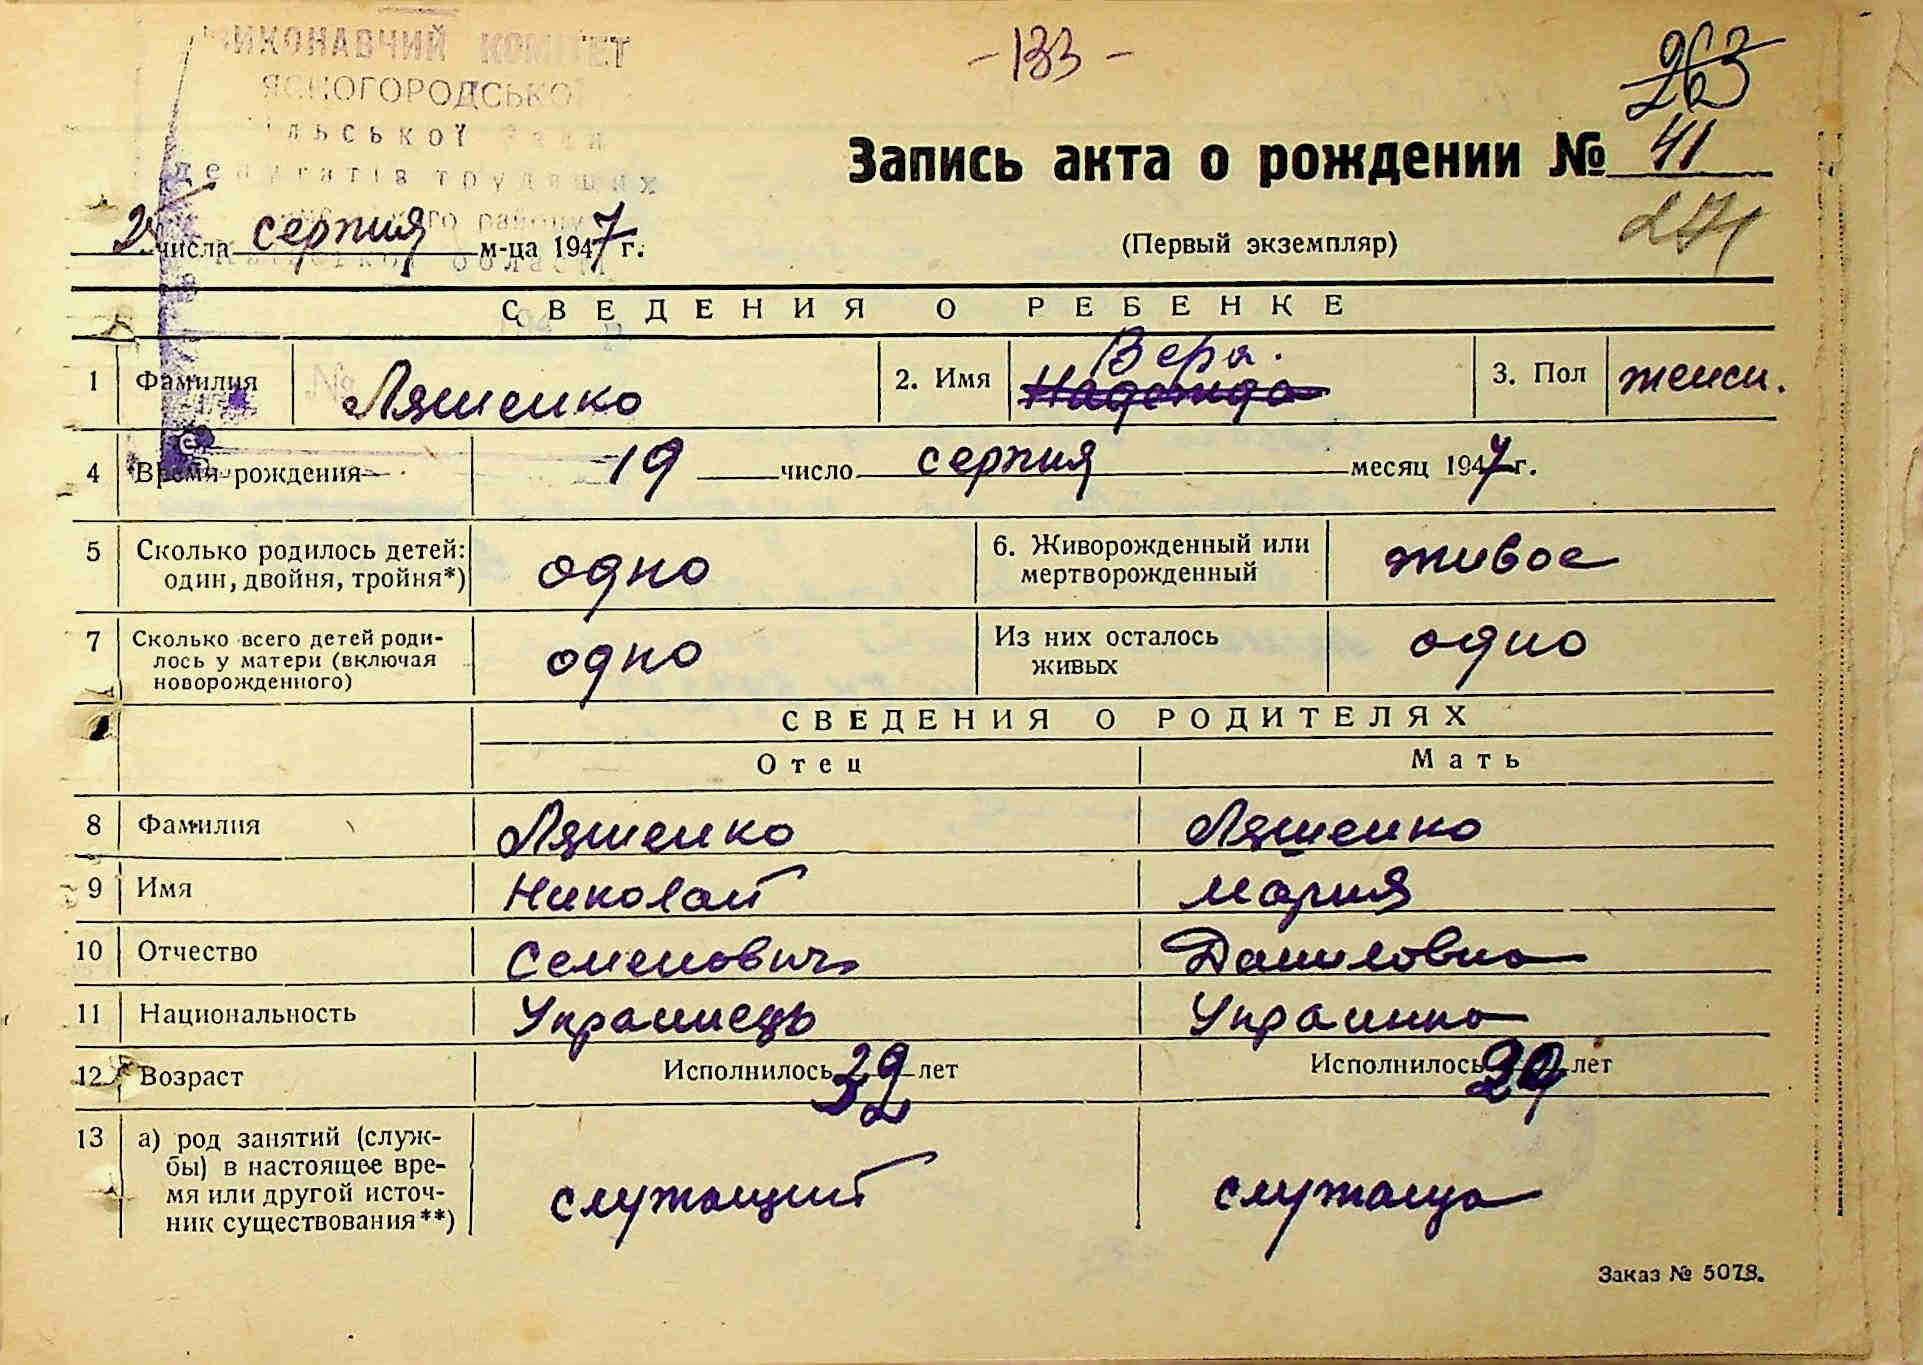 ВИКОНАВЧИЙ КОМІТЕТ
ЯСНОГОРОДСЬКОЇ
сільської Ради
депутатів трудящих
району
області
- 133 -
263
Запись акта о рождении № 41
271
числа серпня м-ца 1947 г.
(Первый экземпляр)
СВЕДЕНИЯ О РЕБЕНКЕ
1 Фамилия Ляшенко 2. Имя Надежда Вера. 3. Пол женск.
4 Время рождения 19 число серпня месяц 1947 г.
5 Сколько родилось детей: один, двойня, тройня*) одно 6. Живорожденный или мертворожденный живое
7 Сколько всего детей роди-
лось у матери (включая
новорожденного) одно Из них осталось живых одно
СВЕДЕНИЯ О РОДИТЕЛЯХ
Отец Мать
8 Фамилия Ляшенко Ляшенко
9 Имя Николай Мария
10 Отчество Семенович Даниловна
11 Национальность Украинець Украинка
12 Возраст Исполнилось 32 лет Исполнилось 29 лет
13 а) род занятий (служ-
бы) в настоящее вре-
мя или другой источ-
ник существования**) служащий служаща
Заказ № 5078.